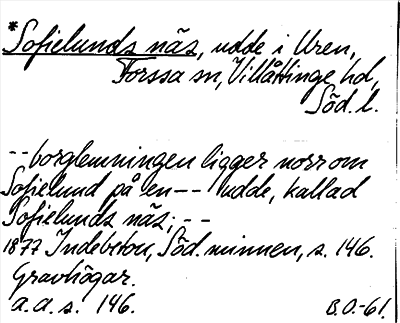 *Sofielunds näs, udde i Uren,
Forssa sn, Villåttinge hd,
Söd. l.
-- borglemningen ligger norr om
Sofielund på en -- udde, kallad
Sofielunds näs; --
1877 Indebetou, Söd. minnen, s. 146.
Gravhögar.
a.a. s. 146.
B.O.-61.